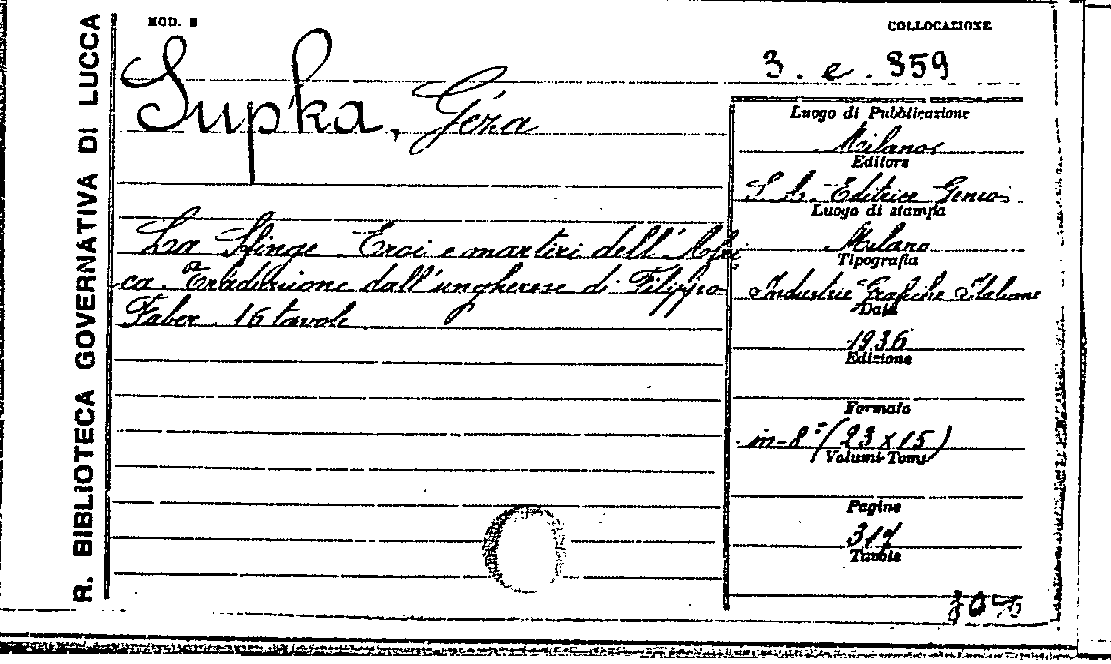 R. BIBLIOTECA GOVERNATIVA DI LUCCA
MOD. B
COLLOCAZIONE
3. e. 359
Supka, Géza
La Sfinge. Eroi e martiri dell'Afri
ca. Traduzione dall'ungherese di Filippo
Faber. 16 tavole
Luogo di Pubblicazione
Milano
Editore
S. A. Editrice Genio
Luogo di stampa
Milano
Tipografia
Industrie Grafiche Italiane
Data
1936
Edizione
Formato
in-8° (23 x 15)
Volumi-Tomi
Pagine
317
Tavole